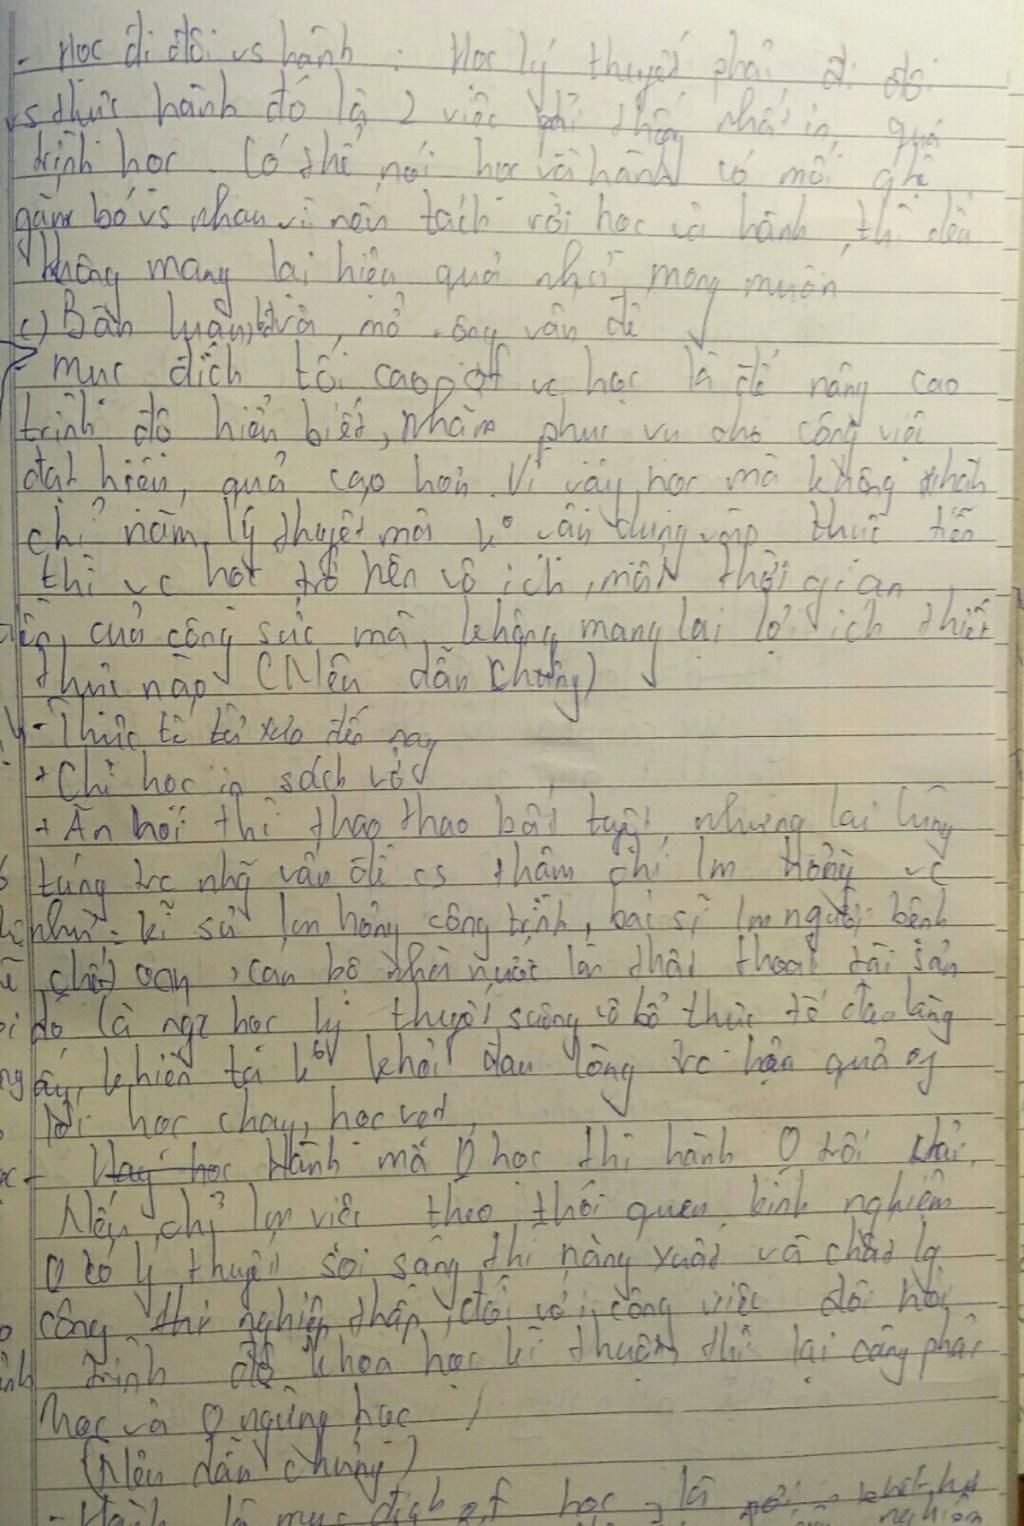 - Học đi đôi vs hành : Học lý thuyết phải đi đôi
vs thực hành đó là 2 việc phải thống nhất in quá
trình học. Có thể nói học và hành có mối qhệ
gắn bó vs nhau vì nên tách rời học và hành thì đều
không mang lại hiệu quả như mong muốn
c) Bàn luận, mở rộng vấn đề
mục đích tối cao of vc học là để nâng cao
trình độ hiểu biết, nhằm phục vụ cho công việc
đạt hiệu quả cao hơn. Vì vậy, học mà không hành
chỉ nắm lý thuyết mà k vận dụng vào thực tiễn
thì vc học trở nên vô ích, mất thời gian
tiền của công sức mà không mang lại lợi ích thiết
thực nào (Nêu dẫn chứng)
- Thực tế từ xưa đến nay
+ Chỉ học in sách vở
+ Ăn nói thì thao thao bất tuyệt, nhưng lại lúng
túng trc nhg vấn đề cs thậm chí lm hỏng vc
như: kĩ sư lm hỏng công trình, bác sĩ lm người bệnh
chết oan, cán bộ nhà nước làm thất thoát tài sản
đó là ngr học lý thuyết suông vô bổ thực tế đau lòng
ấy, khiến ta k khỏi đau lòng trc hậu quả of
lối học chay, học vẹt
- Hành mà 0 học thì hành 0 trôi chảy.
Nếu chỉ lm việc theo thói quen, kinh nghiệm
0 có lý thuyết soi sáng thì năng xuất và chất lg
công nghiệp thấp, đối với công việc đòi hỏi
trình độ khoa học kĩ thuật thì lại càng phải
học và 0 ngừng học
(Nêu dẫn chứng)
- Hành là mục đích of học, là